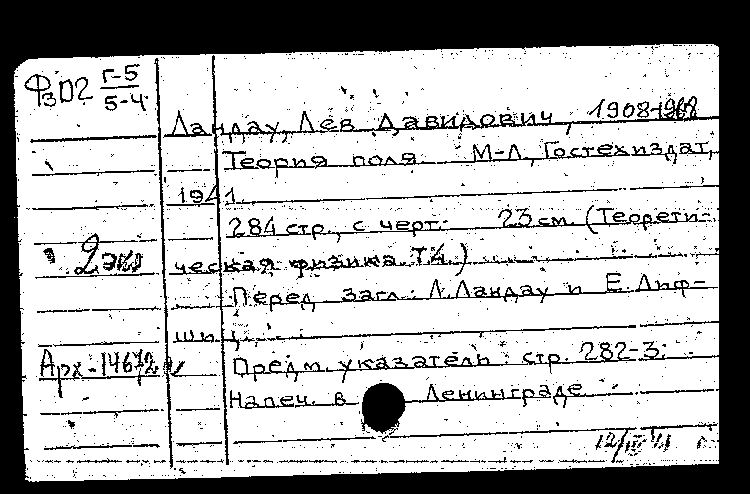 ФзD2 Г-5
5-4
Ландау, Лев Давидович, 1908-1968
Теория поля М-Л, Гостехиздат,
1941.
284 стр., с черт. 23 см. (Теорети-
2 экз
ческая физика. Т.4.)
Перед загл.: Л. Ландау и Е. Лиф-
шиц.
Арх-14672
Предм. указатель: стр. 282-3.
Напеч. в Ленинграде